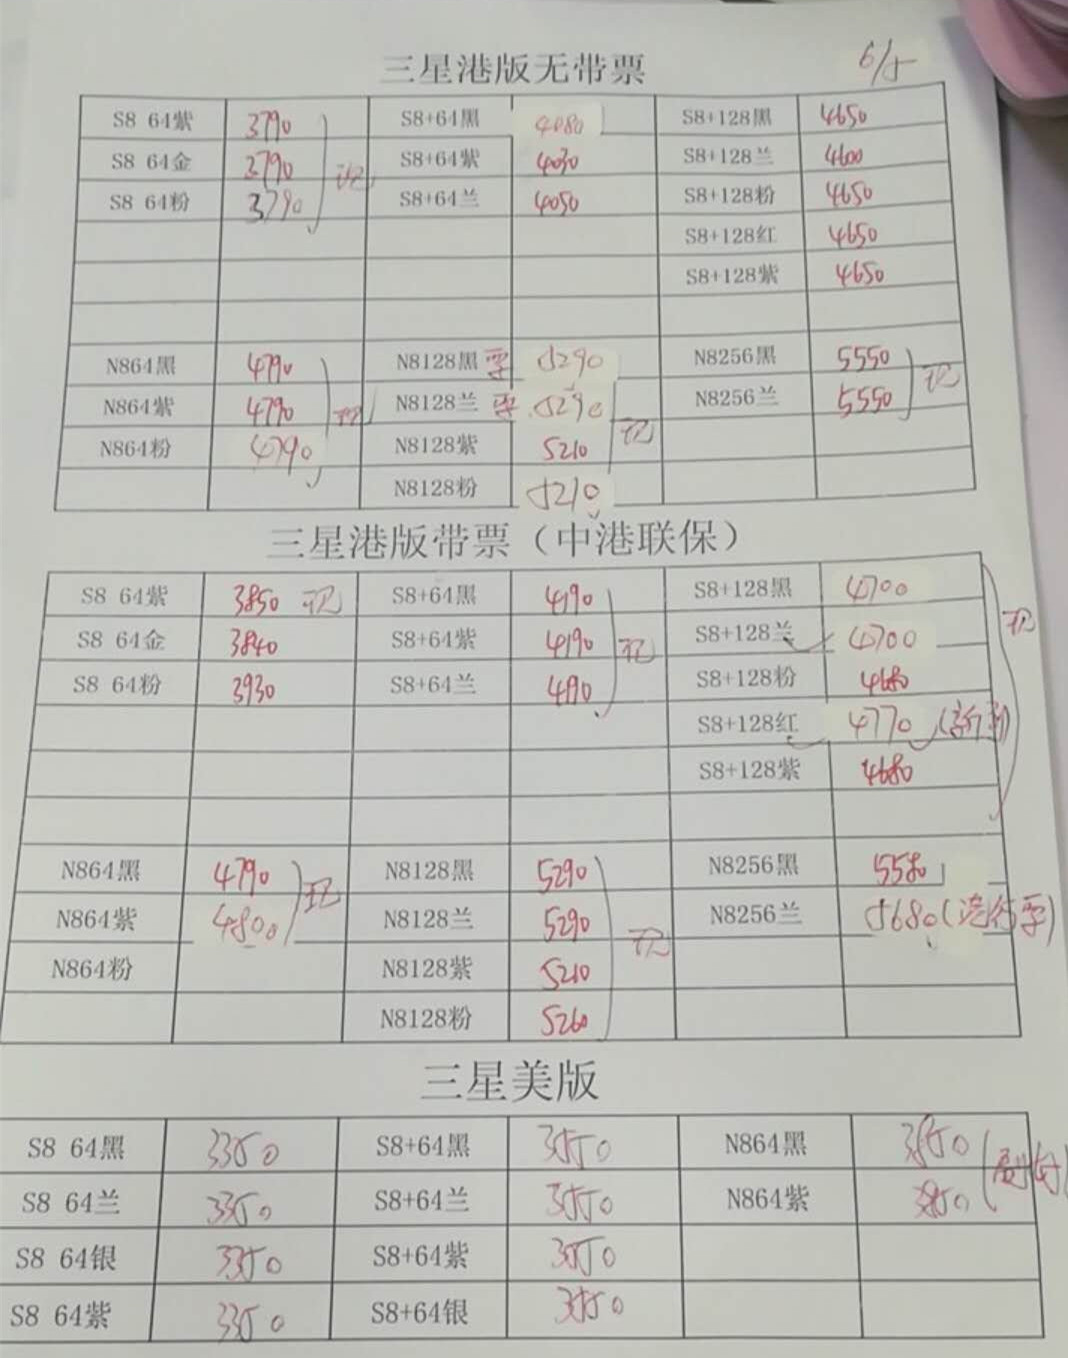 三星港版无带票 6/5
S8 64紫 3790 S8+64黑 4080 S8+128黑 4650
S8 64金 3790 S8+64紫 4030 S8+128兰 4600
S8 64粉 3790 S8+64兰 4050 S8+128粉 4650
S8+128红 4650
S8+128紫 4650
N864黑 4790 N8128黑 票 5290 N8256黑 5550
N864紫 4790 N8128兰 票 5290 N8256兰 5550
N864粉 4790 N8128紫 5210
N8128粉 5210
三星港版带票（中港联保）
S8 64紫 3850 现 S8+64黑 4190 S8+128黑 4700
S8 64金 3840 S8+64紫 4190 现 S8+128兰 4700 现
S8 64粉 3930 S8+64兰 4190 S8+128粉 4680
S8+128红 4770
S8+128紫 4680
N864黑 4790 现 N8128黑 5290 N8256黑 5580
N864紫 4800 N8128兰 5290 现 N8256兰 5680
N864粉 N8128紫 5210
N8128粉 5260
三星美版
S8 64黑 3350 S8+64黑 3550 N864黑 3850
S8 64兰 3350 S8+64兰 3550 N864紫 3850
S8 64银 3350 S8+64紫 3550
S8 64紫 3350 S8+64银 3550